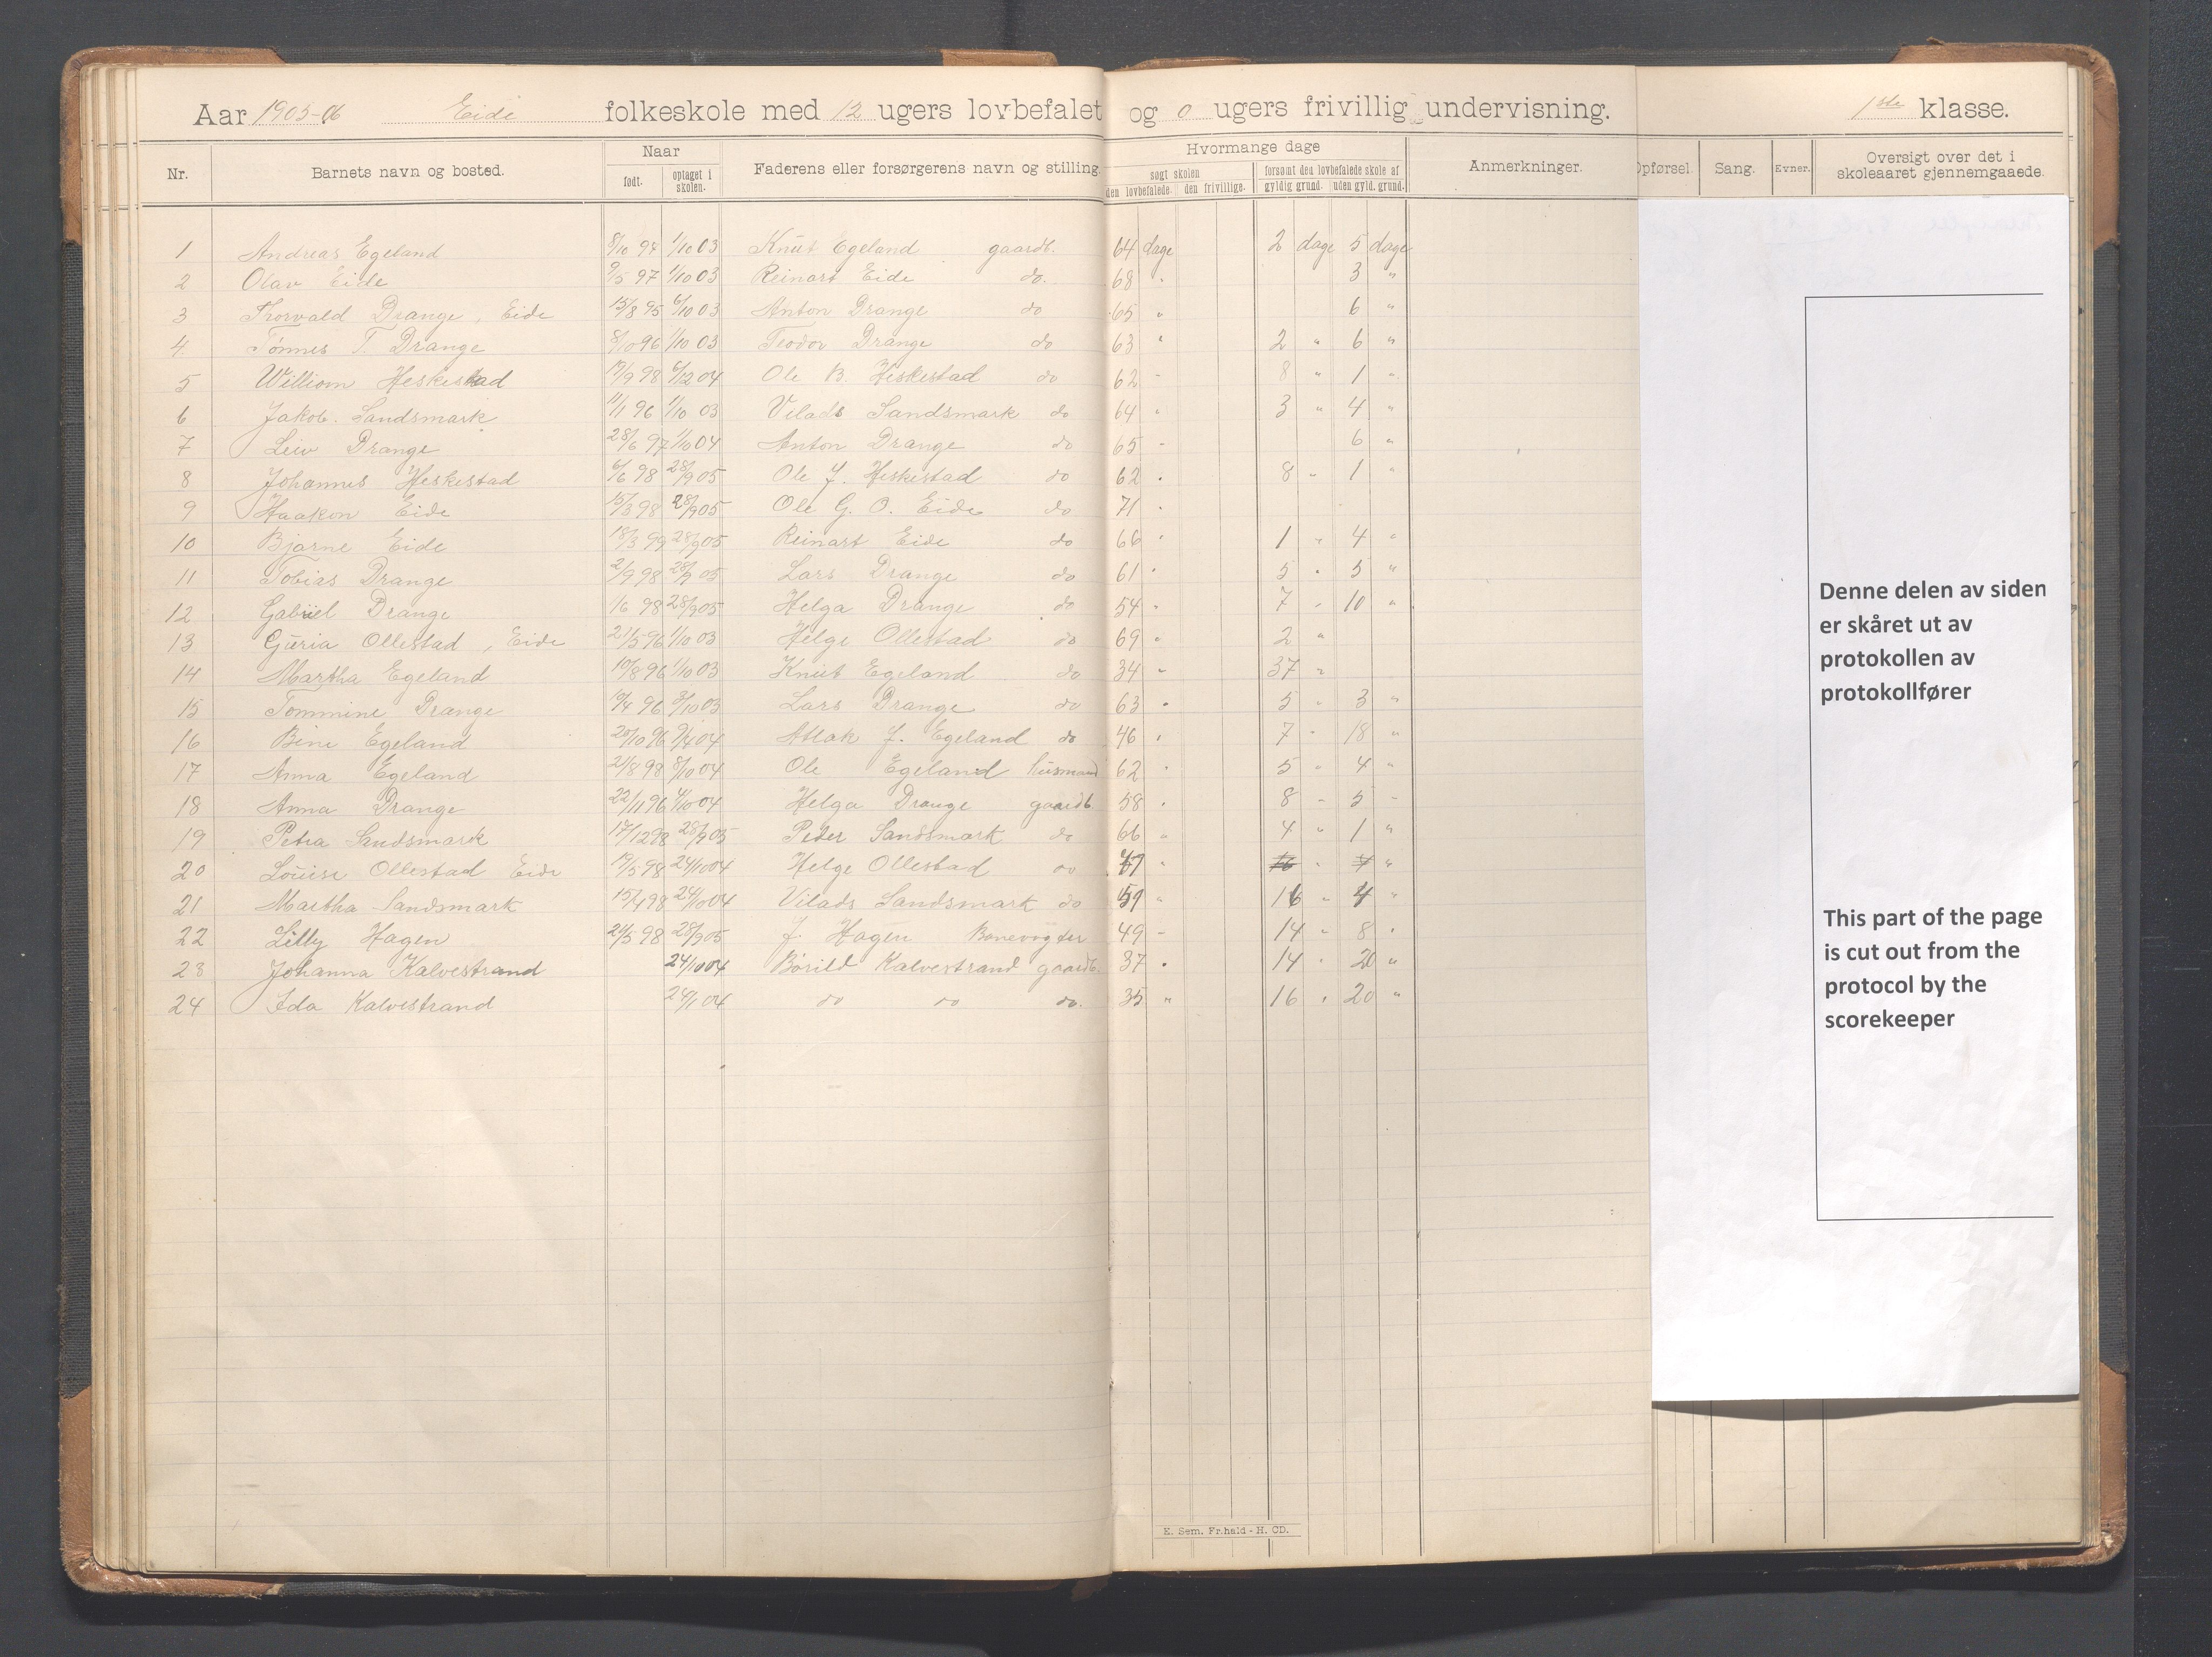 Aar 1905-06 Eide folkeskole med 12 ugers lovbefalet og 0 ugers frivillig undervisning. 1ste klasse.
Nr. Barnets navn og bosted. Naar født. optaget i skolen. Faderens eller forsørgerens navn og stilling. Hvormange dage søgt skolen den lovbefalede. den frivillige. forsømt den lovbefalede skole af gyldig grund. uden gyld. grund. Anmerkninger. Opførsel. Sang. Evner. Oversigt over det i skoleaaret gjennemgaaede.
1 Andreas Egeland 8/10 94 1/10 03 Knut Egeland gaardb. 64 dage 2 dage 5 dage
2 Olav Eide 9/5 97 1/10 03 Reinart Eide do. 68 " 3 "
3 Thorvald Drange, Eide 15/8 95 6/10 03 Anton Drange do 65 " 6 "
4 Tønnes T. Drange 8/10 96 1/10 03 Teodor Drange do 63 " 2 " 6 "
5 William Heskestad 19/9 98 6/12 04 Ole B. Heskestad do 62 " 8 " 1 "
6 Jakob Sandsmark 11/1 96 1/10 03 Vilads Sandsmark do 64 " 3 " 4 "
7 Leiv Drange 28/6 97 1/10 04 Anton Drange do 65 " 6 "
8 Johannes Heskestad 6/6 98 28/9 05 Ole J. Heskestad do 62 " 8 " 1 "
9 Haakon Eide 15/3 98 28/9 05 Ole G. O. Eide do 71 "
10 Bjarne Eide 18/3 99 28/9 05 Reinart Eide do 66 " 1 " 4 "
11 Tobias Drange 2/9 98 28/9 05 Lars Drange do 61 " 5 " 5 "
12 Gabriel Drange 1/6 98 28/9 05 Helga Drange do 54 " 7 " 10 "
13 Guria Ollestad, Eide 21/5 96 1/10 03 Helge Ollestad do 69 " 2 "
14 Martha Egeland 10/8 96 1/10 03 Knut Egeland do 34 " 37 "
15 Tommine Drange 19/4 96 9/10 03 Lars Drange do 63 " 5 " 3 "
16 Bine Egeland 20/10 96 9/4 04 Atlak J. Egeland do 46 " 7 " 18 "
17 Anna Egeland 21/8 98 8/10 04 Ole Egeland husmand 62 " 5 " 4 "
18 Anna Drange 22/11 96 4/10 04 Helga Drange gaardb. 58 " 8 " 5 "
19 Petra Sandsmark 17/12 98 28/9 05 Peder Sandsmark do 66 " 4 " 1 "
20 Louise Ollestad Eide 19/5 98 24/10 04 Helge Ollestad do " 16 " 4 "
21 Martha Sandsmark 15/4 98 24/10 04 Vilads Sandsmark do 59 " 16 " 4 "
22 Lilly Hagen 24/5 98 28/9 05 J. Hagen Banevogter 49 " 14 " 8 "
23 Johanna Kalvestrand 24/10 04 Børild Kalvestrand gaardb. 37 " 14 " 20 "
24 Ida Kalvestrand 24/1 04 do do do. 35 " 16 " 20 "
Denne delen av siden
er skåret ut av
protokollen av
protokollfører
This part of the page
is cut out from the
protocol by the
scorekeeper
E. Sem. Fr.hald - H. CD.